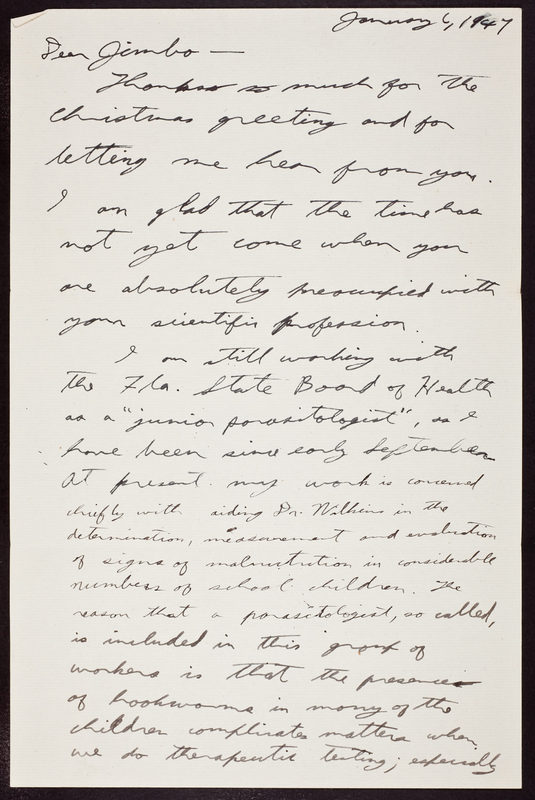 January 6, 1947
Dear Jimbo —
Thanks so much for the
Christmas greeting and for
letting me hear from you.
I am glad that the time has
not yet come when you
are absolutely preoccupied with
your scientific profession.
I am still working with
the Fla. State Board of Health
as a "junior parasitologist", as I
have been since early September.
At present my work is concerned
chiefly with aiding Dr. Wilkins in the
determination, measurement and evaluation
of signs of malnutrition in considerable
numbers of school children. The
reason that a parasitologist, so called,
is included in this group of
workers is that the presence
of hookworms in many of the
children complicates matters when
we do therapeutic testing; especially